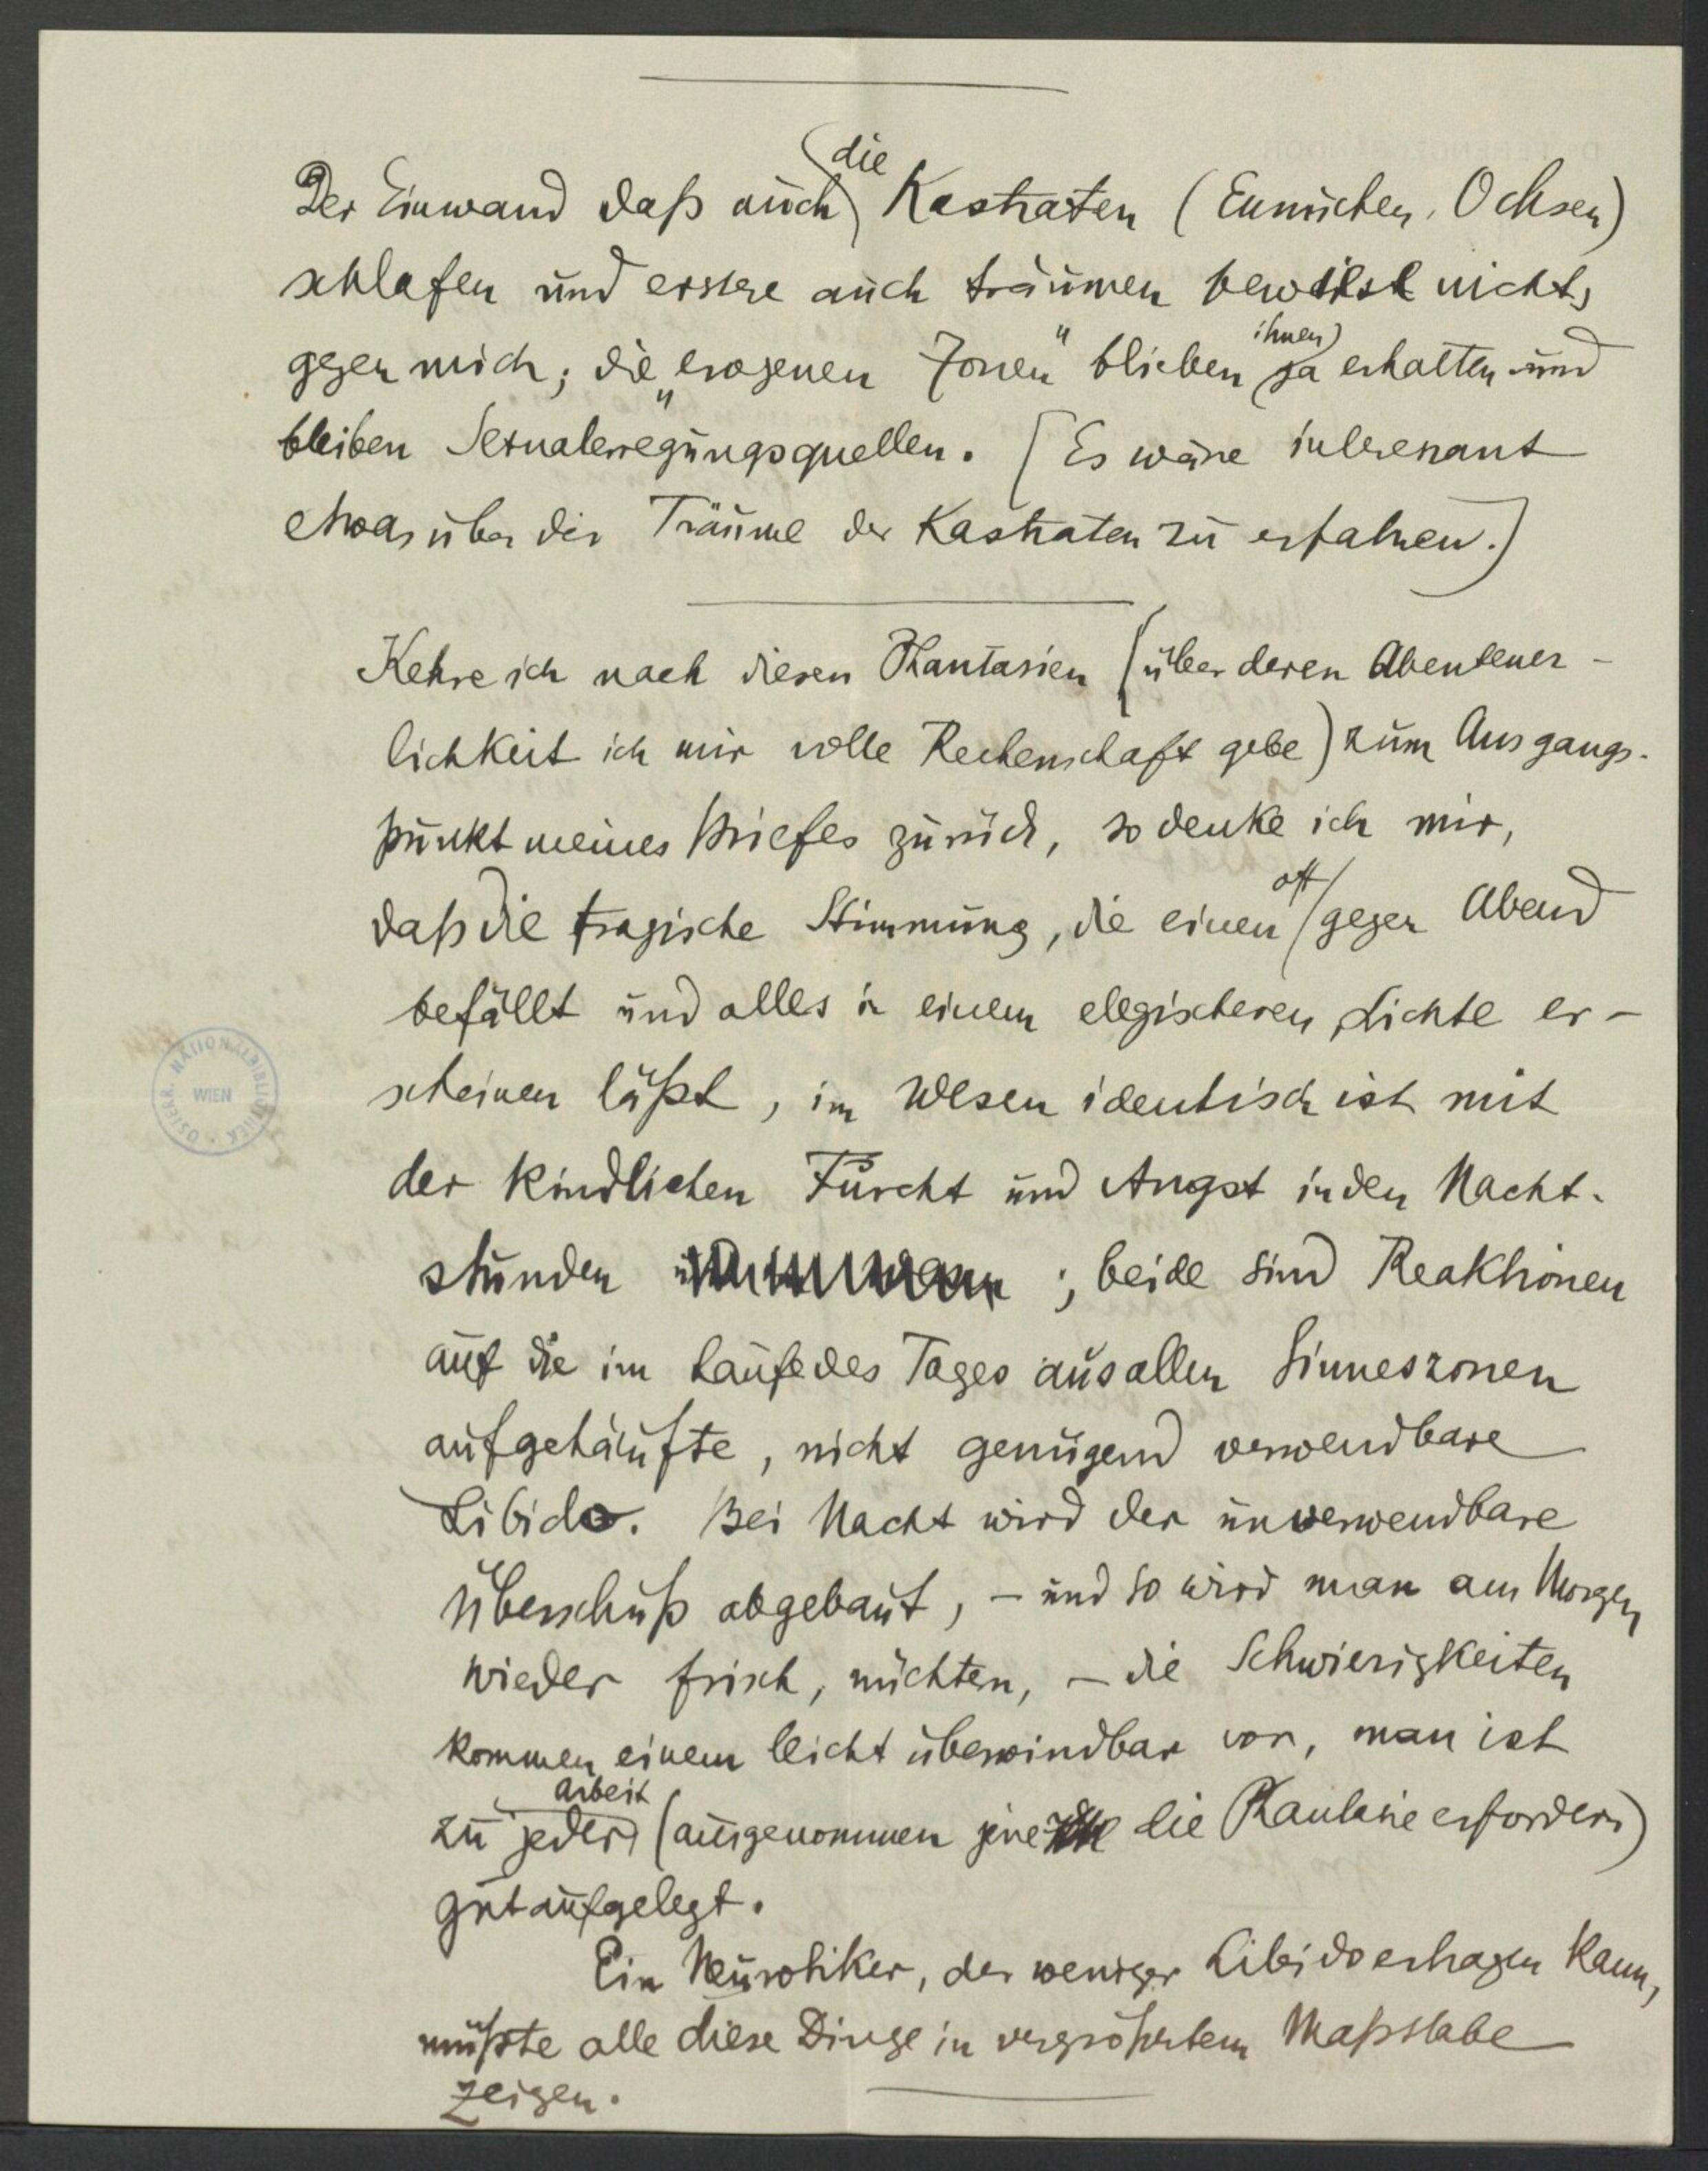 Der Einwand daß auch die Kastraten (Eunuchen, Ochsen)
schlafen und erstere auch träumen beweist nichts
gegen mich; die „erogenen Zonen" blieben ihnen ja erhalten und
bleiben Sexualerregungsquellen. (Es wäre interessant
etwas über die Träume der Kastraten zu erfahren.)
Kehre ich nach diesen Phantasien (über deren Abenteuer-
lichkeit ich mir volle Rechenschaft gebe) zum Ausgangs-
punkt meines Briefes zurück, so denke ich mir,
daß die tragische Stimmung, die einen oft gegen Abend
befällt und alles in einem elegischeren Lichte er-
scheinen läßt, im Wesen identisch ist mit
der kindlichen Furcht und Angst in den Nacht-
stunden ; beide sind Reaktionen
auf die im Laufe des Tages aus allen Sinneszonen
aufgehäufte, nicht genügend verwendbare
Libido. Bei Nacht wird der unverwendbare
Überschuß abgebaut, – und so wird man am Morgen
wieder frisch, nüchtern, – die Schwierigkeiten
kommen einem leicht überwindbar vor, man ist
zu jeder Arbeit (ausgenommen jene die Phantasie erfordern)
gut aufgelegt.
Ein Neurotiker, der weniger Libido ertragen kann,
müßte alle diese Dinge in vergrößertem Maßstabe
zeigen.
ÖSTERR. NATIONALBIBLIOTHEK
WIEN